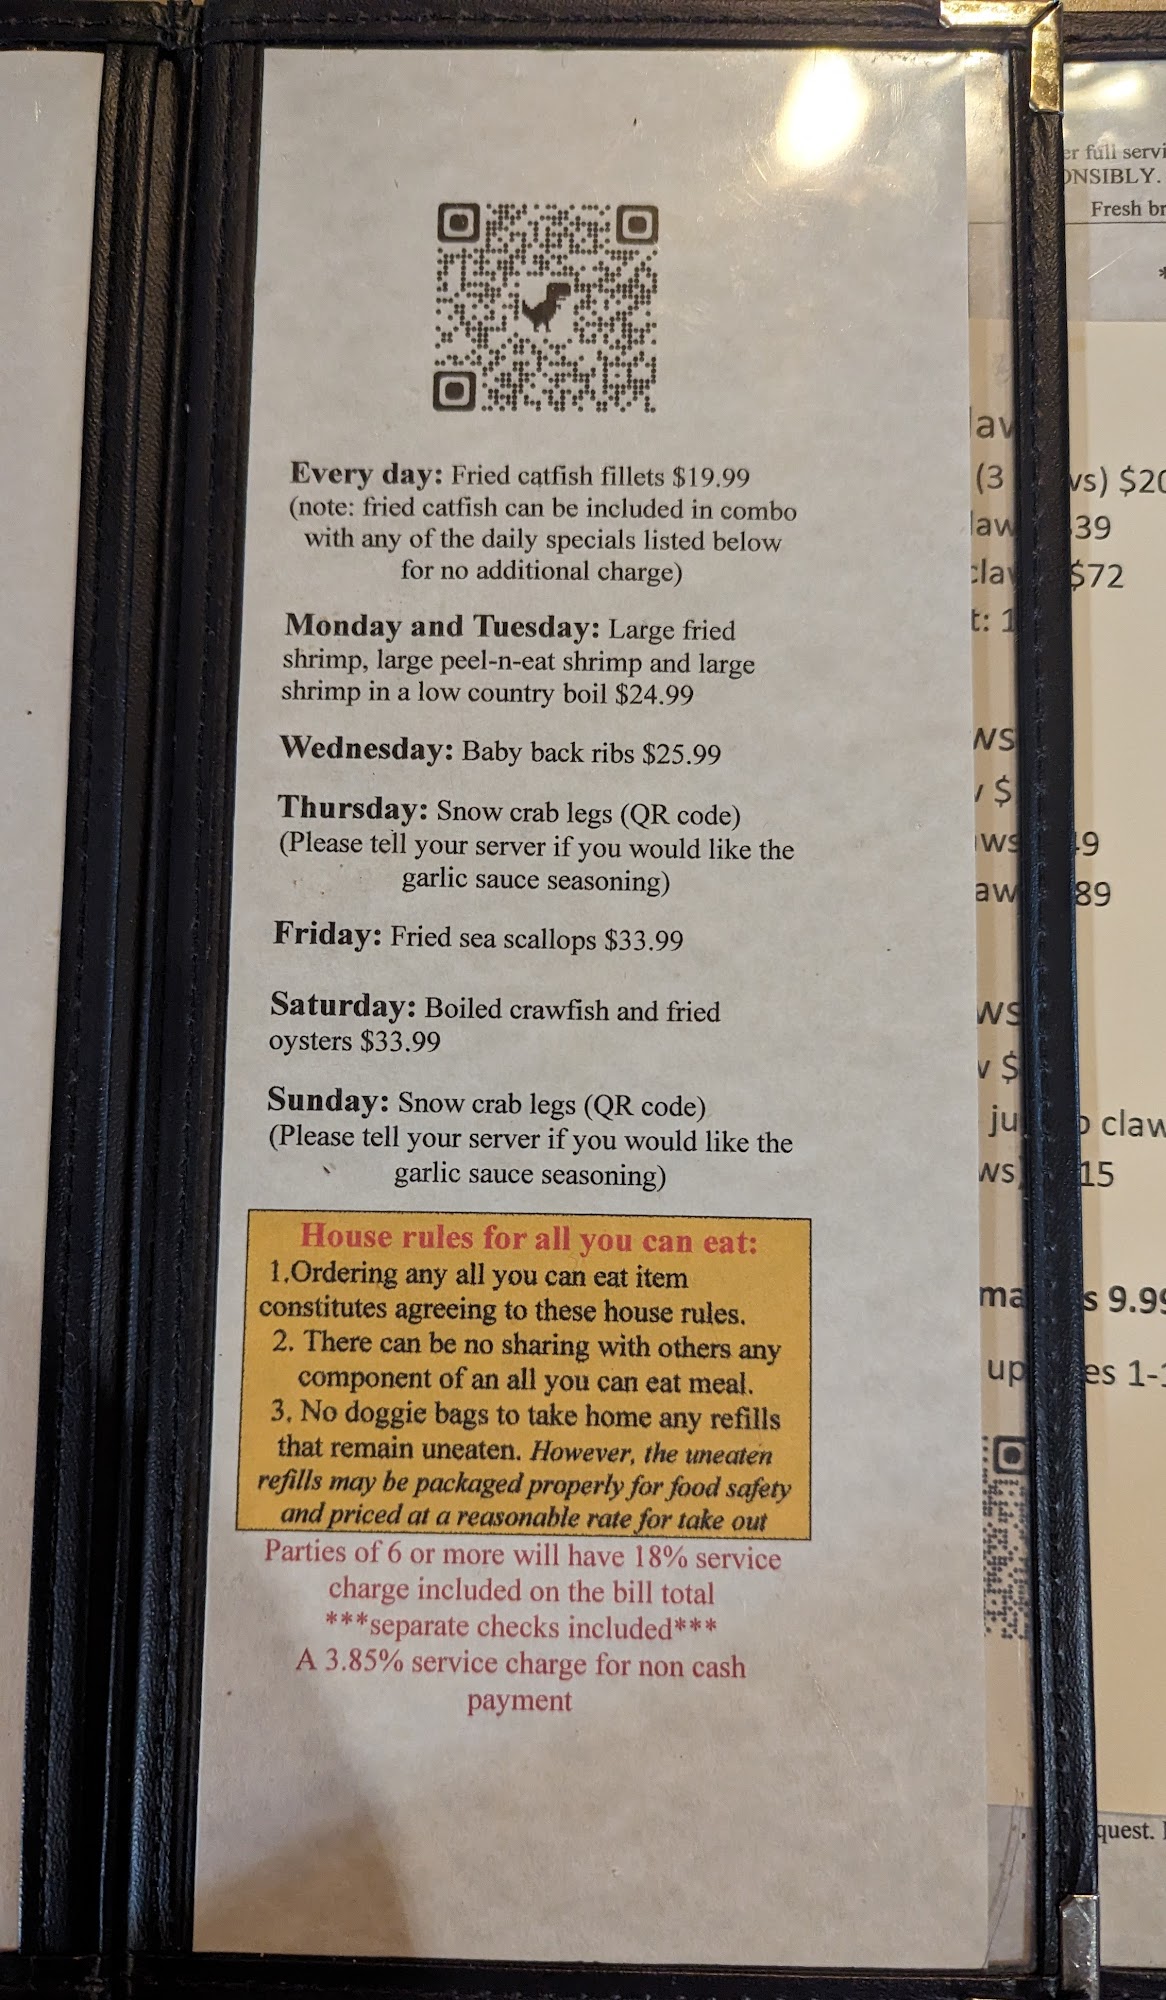 Every day: Fried catfish fillets $19.99
(note: fried catfish can be included in combo
with any of the daily specials listed below
for no additional charge)
Monday and Tuesday: Large fried
shrimp, large peel-n-eat shrimp and large
shrimp in a low country boil $24.99
Wednesday: Baby back ribs $25.99
Thursday: Snow crab legs (QR code)
(Please tell your server if you would like the
garlic sauce seasoning)
Friday: Fried sea scallops $33.99
Saturday: Boiled crawfish and fried
oysters $33.99
Sunday: Snow crab legs (QR code)
(Please tell your server if you would like the
garlic sauce seasoning)
House rules for all you can eat:
1.Ordering any all you can eat item
constitutes agreeing to these house rules.
2. There can be no sharing with others any
component of an all you can eat meal.
3. No doggie bags to take home any refills
that remain uneaten. However, the uneaten
refills may be packaged properly for food safety
and priced at a reasonable rate for take out
Parties of 6 or more will have 18% service
charge included on the bill total
***separate checks included***
A 3.85% service charge for non cash
payment
er full servi
ONSIBLY.
Fresh br
(3
$20
39
$72
$
49
89
$
ju
claw
15
s 9.99
up
es 1-
quest.